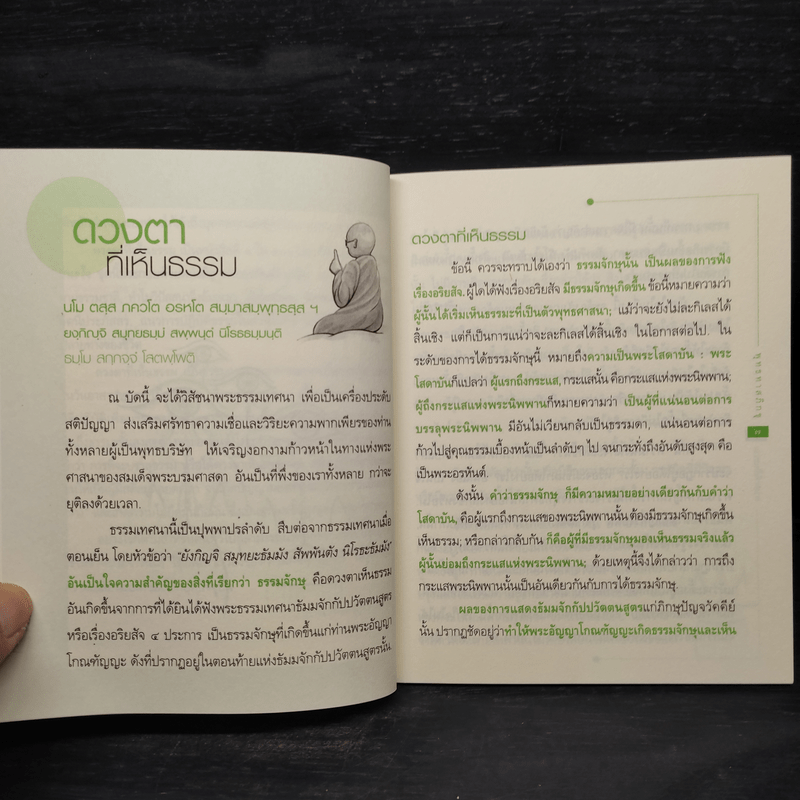 ดวงตา
ที่เห็นธรรม
นโม ตสฺส ภควโต อรหโต สมฺมาสมฺพุทฺธสฺส ฯ
ยงฺกิญฺจิ สมุทยธมฺมํ สพฺพนฺตํ นิโรธธมฺมนฺติ
ธมฺโม สกฺกจฺจํ โสตพฺโพติ
ณ บัดนี้ จะได้วิสัชนาพระธรรมเทศนา เพื่อเป็นเครื่องประดับ
สติปัญญา ส่งเสริมศรัทธาความเชื่อและวิริยะความพากเพียรของท่าน
ทั้งหลายผู้เป็นพุทธบริษัท ให้เจริญงอกงามก้าวหน้าในทางแห่งพระ
ศาสนาของสมเด็จพระบรมศาสดา อันเป็นที่พึ่งของเราทั้งหลาย กว่าจะ
ยุติลงด้วยเวลา.
ธรรมเทศนานี้เป็นปุพพาปรลำดับ สืบต่อจากธรรมเทศนาเมื่อ
ตอนเย็น โดยหัวข้อว่า "ยังกิญจิ สมุทยะธัมมัง สัพพันตัง นิโรธะธัมมัง"
อันเป็นใจความสำคัญของสิ่งที่เรียกว่า ธรรมจักษุ คือดวงตาเห็นธรรม
อันเกิดขึ้นจากการที่ได้ยินได้ฟังพระธรรมเทศนาธัมมจักกัปปวัตตนสูตร
หรือเรื่องอริยสัจ ๔ ประการ เป็นธรรมจักษุที่เกิดขึ้นแก่ท่านพระอัญญา
โกณฑัญญะ ดังที่ปรากฏอยู่ในตอนท้ายแห่งธัมมจักกัปปวัตตนสูตรนั้น.
ดวงตาที่เห็นธรรม
ข้อนี้ ควรจะทราบได้เองว่า ธรรมจักษุนั้น เป็นผลของการฟัง
เรื่องอริยสัจ. ผู้ใดได้ฟังเรื่องอริยสัจ มีธรรมจักษุเกิดขึ้น ข้อนี้หมายความว่า
ผู้นั้นได้เริ่มเห็นธรรมะที่เป็นตัวพุทธศาสนา; แม้ว่าจะยังไม่ละกิเลสได้
สิ้นเชิง แต่ก็เป็นการแน่ว่าจะละกิเลสได้สิ้นเชิง ในโอกาสต่อไป. ใน
ระดับของการได้ธรรมจักษุนี้ หมายถึงความเป็นพระโสดาบัน : พระ
โสดาบันก็แปลว่า ผู้แรกถึงกระแส, กระแสนั้น คือกระแสแห่งพระนิพพาน;
ผู้ถึงกระแสแห่งพระนิพพานก็หมายความว่า เป็นผู้ที่แน่นอนต่อการ
บรรลุพระนิพพาน มีอันไม่เวียนกลับเป็นธรรมดา, แน่นอนต่อการ
ก้าวไปสู่คุณธรรมเบื้องหน้าเป็นลำดับๆ ไป จนกระทั่งถึงอันดับสูงสุด คือ
เป็นพระอรหันต์.
ดังนั้น คำว่าธรรมจักษุ ก็มีความหมายอย่างเดียวกันกับคำว่า
โสดาบัน, คือผู้แรกถึงกระแสของพระนิพพานนั้น ต้องมีธรรมจักษุเกิดขึ้น
เห็นธรรม; หรือกล่าวกลับกัน ก็คือผู้ที่มีธรรมจักษุมองเห็นธรรมจริงแล้ว
ผู้นั้นย่อมถึงกระแสแห่งพระนิพพาน; ด้วยเหตุนี้จึงได้กล่าวว่า การถึง
กระแสพระนิพพานนั้นเป็นอันเดียวกันกับการได้ธรรมจักษุ.
ผลของการแสดงธัมมจักกัปปวัตตนสูตรแก่ภิกษุปัญจวัคคีย์
นั้น ปรากฏชัดอยู่ว่าทำให้พระอัญญาโกณฑัญญะเกิดธรรมจักษุและเห็น
พุทธทาสภิกขุ